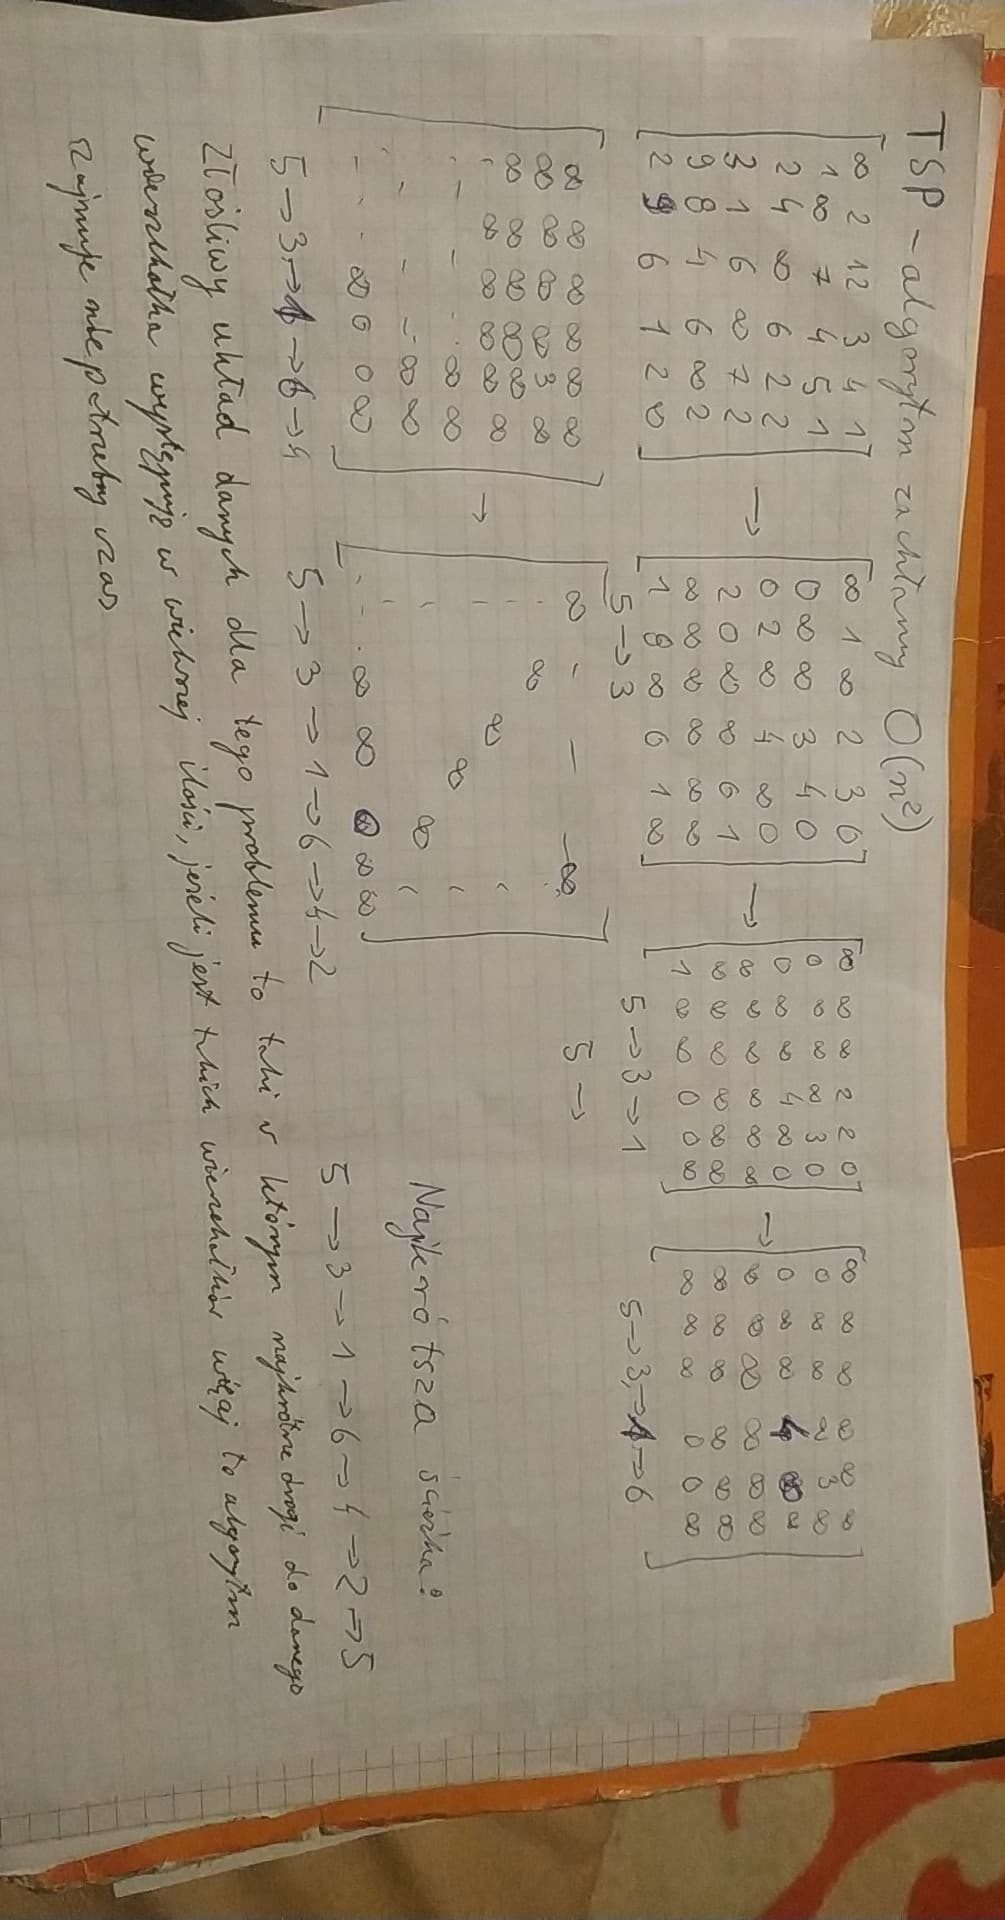 TSP - algorytm zachłanny O(n²)
∞ 2 12 3 4 1
1 ∞ 7 4 5 1
2 4 ∞ 6 2 2
3 1 6 ∞ 7 2
9 8 4 6 ∞ 2
2 9 6 1 2 ∞
→
∞ 1 ∞ 2 3 0
0 ∞ ∞ 3 4 0
0 2 ∞ 4 ∞ 0
2 0 ∞ ∞ 6 1
∞ ∞ ∞ ∞ ∞ ∞
1 8 ∞ 0 1 ∞
5 → 3
→
∞ ∞ ∞ 2 2 0
0 ∞ ∞ ∞ 3 0
0 ∞ ∞ 4 ∞ 0
∞ ∞ ∞ ∞ ∞ ∞
∞ ∞ ∞ ∞ ∞ ∞
1 ∞ ∞ 0 0 ∞
5 → 3 → 1
→
∞ ∞ ∞ ∞ ∞ ∞
0 ∞ ∞ 2 3 ∞
0 ∞ ∞ 4 ∞ ∞
∞ ∞ ∞ ∞ ∞ ∞
∞ ∞ ∞ ∞ ∞ ∞
∞ ∞ ∞ 0 0 ∞
5 → 3 → 1 → 6
∞ ∞ ∞ ∞ ∞ ∞
∞ ∞ ∞ ∞ 3 ∞
∞ ∞ ∞ ∞ ∞ ∞
∞ ∞ ∞
∞ ∞
∞ 0 0 ∞
5 → 3 → 1 → 6 → 4
→
∞ ∞
∞
∞
∞
∞
∞ ∞ ∞ ∞ ∞
5 → 3 → 1 → 6 → 4 → 2
5 →
Najkrótsza ścieżka:
5 → 3 → 1 → 6 → 4 → 2 → 5
Złośliwy układ danych dla tego problemu to taki w którym najkrótsze drogi do danego
wierzchołka występuje w większej ilości, jeżeli jest takich wierzchołków więcej to algorytm
zajmuje niepotrzebny czas